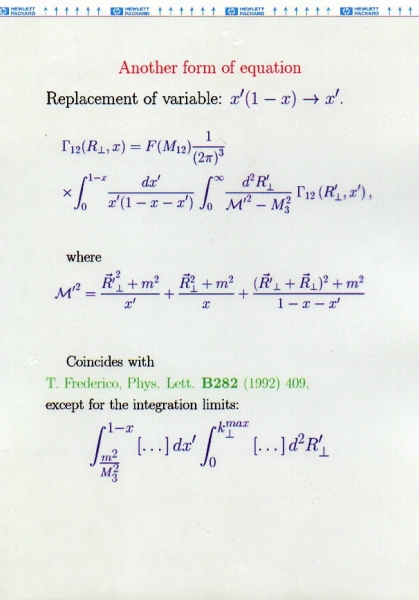 HEWLETT PACKARD HEWLETT PACKARD HEWLETT PACKARD HEWLETT PACKARD
Another form of equation
Replacement of variable: x′(1 − x) → x′.
Γ₁₂(R⊥, x) = F(M₁₂) 1/(2π)³
× ∫₀^{1−x} dx′/(x′(1 − x − x′)) ∫₀^∞ d²R′⊥/(ℳ′² − M₃²) Γ₁₂ (R′⊥, x′),
where
ℳ′² = (R⃗′²⊥ + m²)/x′ + (R⃗²⊥ + m²)/x + ((R⃗′⊥ + R⃗⊥)² + m²)/(1 − x − x′)
Coincides with
T. Frederico, Phys. Lett. B282 (1992) 409,
except for the integration limits:
∫_{m²/M₃²}^{1−x} [...] dx′ ∫₀^{k⊥^{max}} [...] d²R′⊥